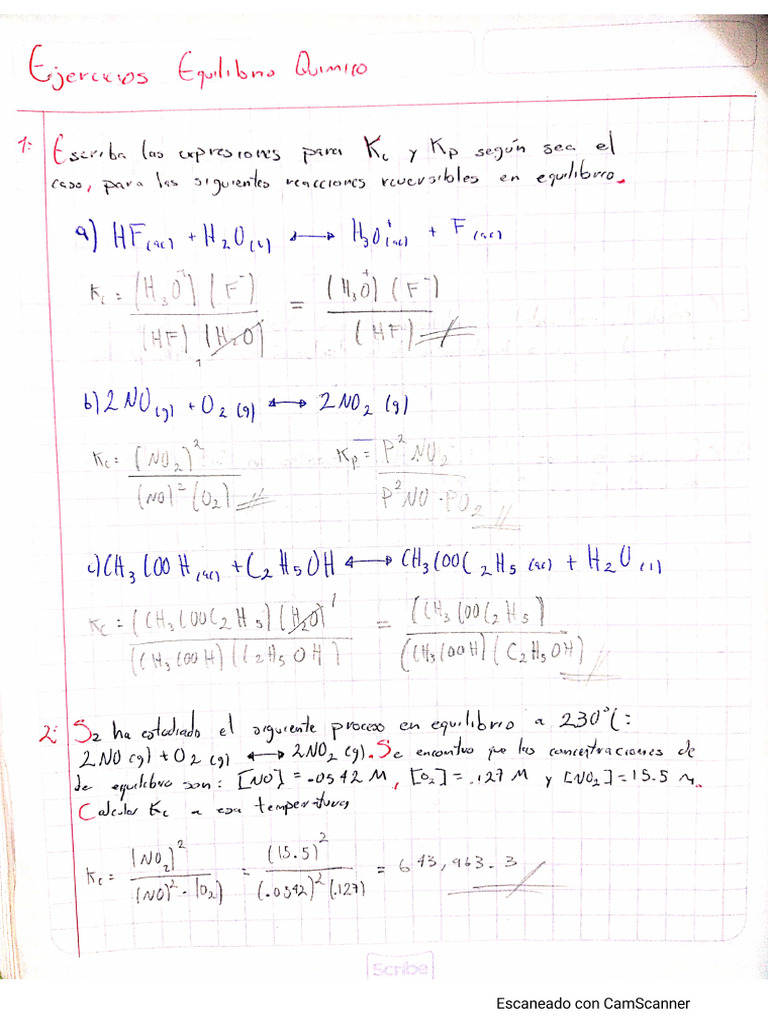 Ejercicios Equilibrio Quimico
1: Escriba las expresiones para Kc y Kp según sea el
caso, para las siguientes reacciones reversibles en equilibrio.
a) HF(ac) + H2O(l) ⟷ H3O⁺(ac) + F(ac)
Kc = (H3O⁺) (F⁻) / (HF) (H2O) 1 = (H3O⁺) (F⁻) / (HF)
b) 2 NO(g) + O2 (g) ⟷ 2 NO2 (g)
Kc = (NO2)² / (NO)² (O2) Kp = P² NO2 / P² NO · PO2
c) CH3COOH(ac) + C2H5OH ⟷ CH3COOC2H5 (ac) + H2O (l)
Kc = (CH3COOC2H5) (H2O) 1 / (CH3COOH) (C2H5OH) = (CH3COOC2H5) / (CH3COOH) (C2H5OH)
2: S2 ha estudiado el siguiente proceso en equilibrio a 230°C:
2 NO (g) + O2 (g) ⟷ 2 NO2 (g). Se encontro que las concentraciones de
de equilibrio son: [NO] = .0542 M, [O2] = .127 M y [NO2] = 15.5 M.
Calcular Kc a esa temperatura
Kc = [NO2]² / (NO)² · [O2) = (15.5)² / (.0542)² (.127) = 643,963.3
Scribe
Escaneado con CamScanner